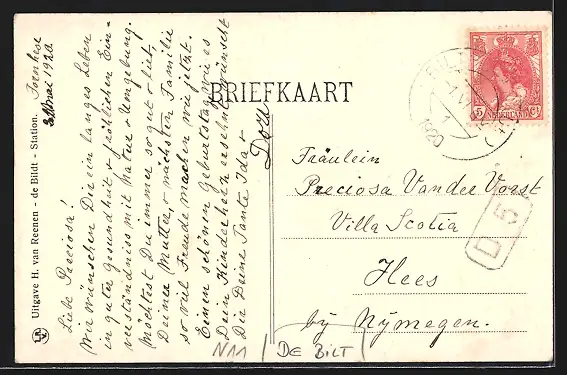 Uitgave H. van Reenen - de Bildt - Station.
Mai 1920
Liebe Preciosa!
Wir wünschen Dir ein langes Leben
in guter Gesundheit & fröhlichen Ein-
verständniss mit Natur & Umgebung.
Möchtest Du immer so gut & lieb
Deiner Mutter & nächsten Familie
so viel Freude machen wie jetzt.
Einen schönen Geburtstag, wie es
Dein Kinderherz ersehnt wünscht
Dir Deine Tante Ida &
Dora
BRIEFKAART
5 NEDERLAND Ct
BILT
1920
Fräulein
Preciosa Van der Vorst
Villa Scotia
Hees
by Nymegen.
D 5
N11 / DE BILT /